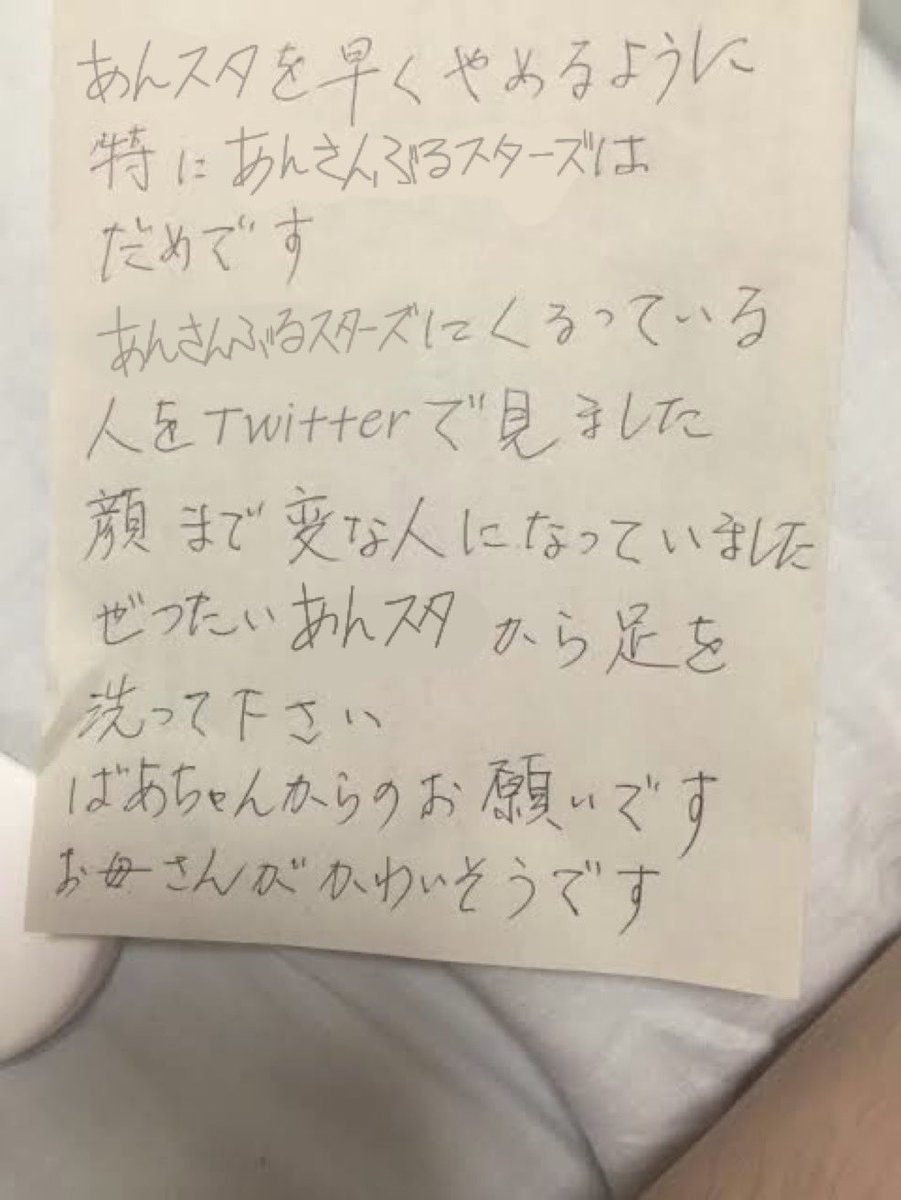 あんスタを早くやめるように
特にあんさんぶるスターズは
だめです
あんさんぶるスターズにくるっている
人をTwitterで見ました
顔まで変な人になっていました
ぜったいあんスタから足を
洗って下さい
ばあちゃんからのお願いです
お母さんがかわいそうです